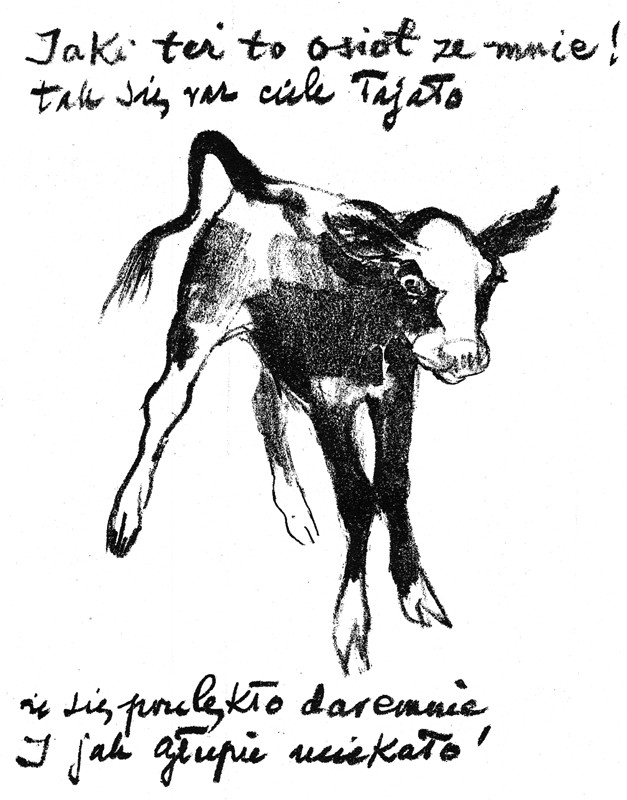 Jaki też to osioł ze mnie!
tak się raz cielę łajało
że się przelękło daremnie
I jak głupie uciekało!